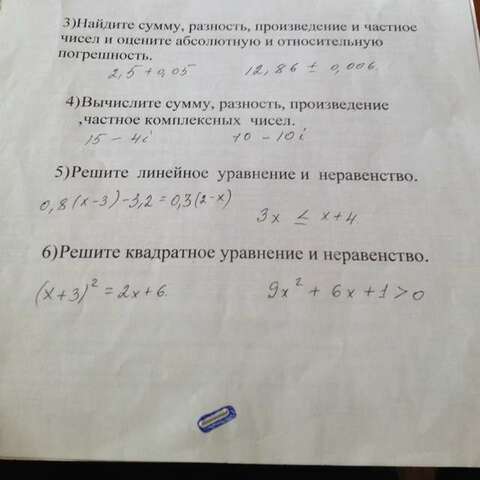 3)Найдите сумму, разность, произведение и частное
чисел и оцените абсолютную и относительную
погрешность.
2,5 + 0,05 12,86 ± 0,006.
4)Вычислите сумму, разность, произведение
,частное комплексных чисел.
15 – 4i 10 – 10i
5)Решите линейное уравнение и неравенство.
0,8(x–3)–3,2=0,3(2–x)
3x ≤ x+4
6)Решите квадратное уравнение и неравенство.
(x+3)² = 2x+6. 9x² + 6x+1>0